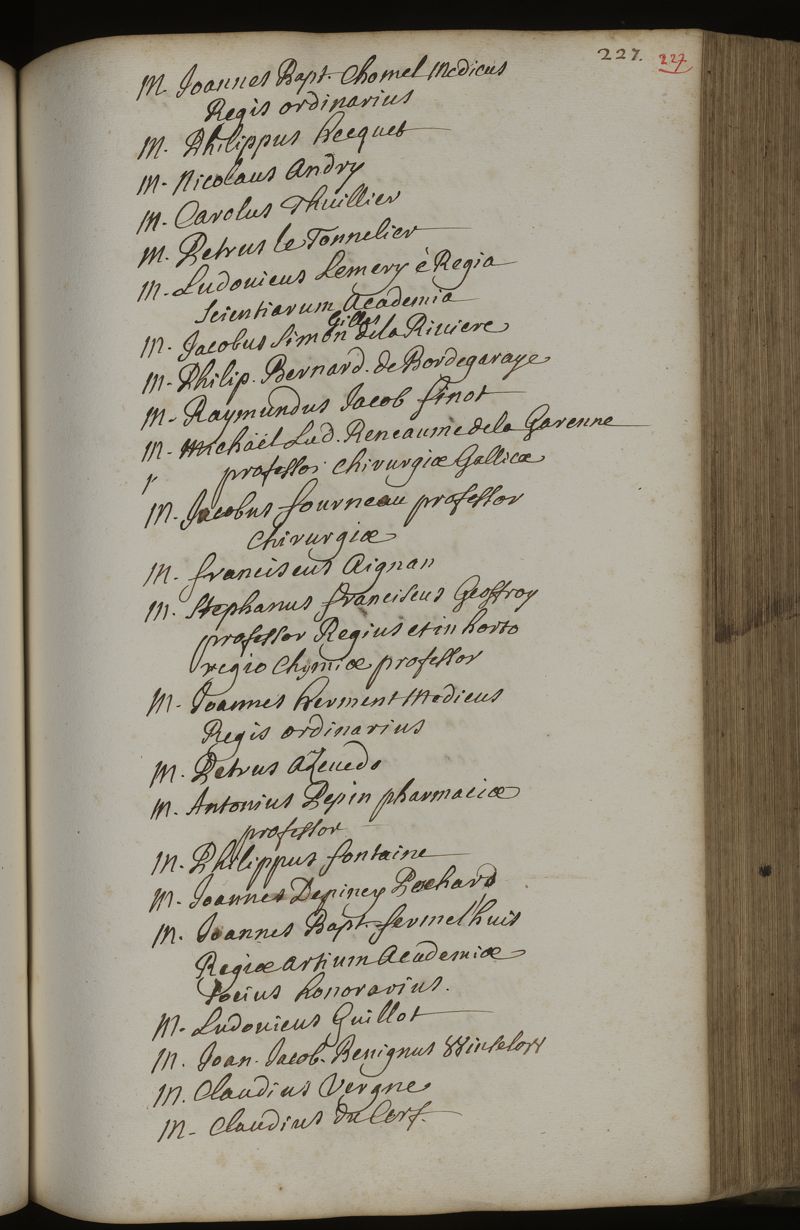 227. 227
M. Joannes Bapt. Chomel Medicus
Regis ordinarius
M. Philippus hecquet
M. Nicolaus Andry
M. Carolus Thuillier
M. Petrus le Tonnelier
M. Ludovicus Lemery è Regia
Scientiarum Academia
M. Jacobus Simon Gilles dela Riviere
M. Philip. Bernard. de Bordegaraye
M. Raymundus Jacob finot
M. Michaël Lud. Reneaume dela Garenne
professor chirurgiæ Gallicæ
M. Jacobus fourneau professor
chirurgiæ
M. franciscus Aignan
M. Stephanus franciscus Geoffroy
professor Regius et in horto
regio chymiæ professor
M. Joannes herment Medicus
Regis ordinarius
M. Petrus Azevedo
M. Antonius Pepin pharmaciæ
professor
M. Philippus fontaine
M. Joannes Depiney Pochard
M. Joannes Bapt. fermelhuis
Regiæ artium Academiæ
socius honorarius.
M. Ludovicus Guillot
M. Joan. Jacob. Benignus Winslow
M. Claudius Vergne
M. Claudius du Cerf.